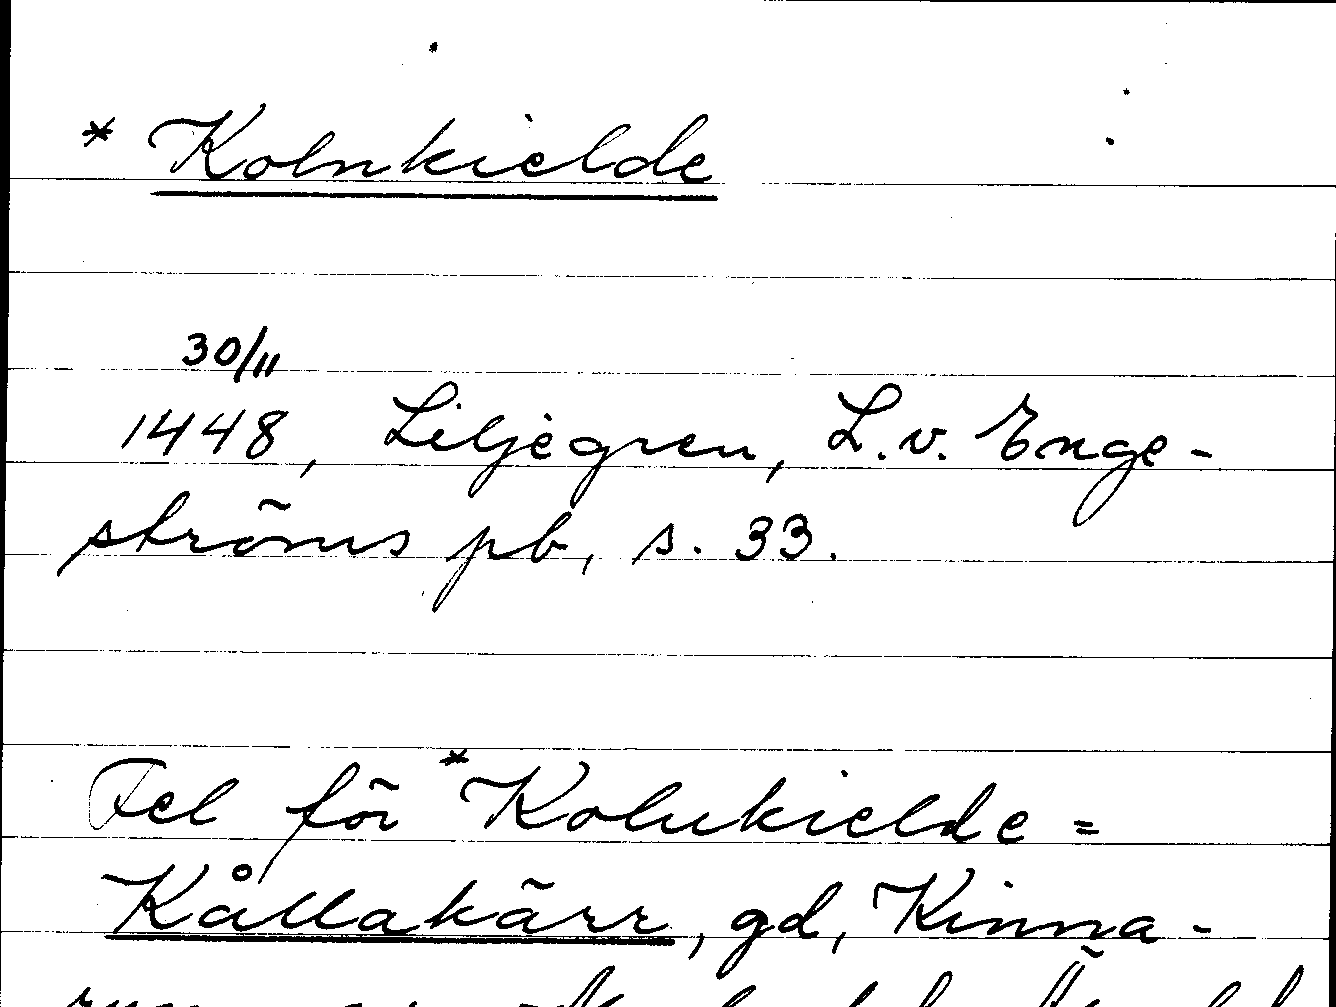 * Kolnkielde
30/11
1448, Liljegren, L. v. Enge-
ströms pb, s. 33.
Fel för *Kolukielde =
Kållakärr, gd, Kinna-